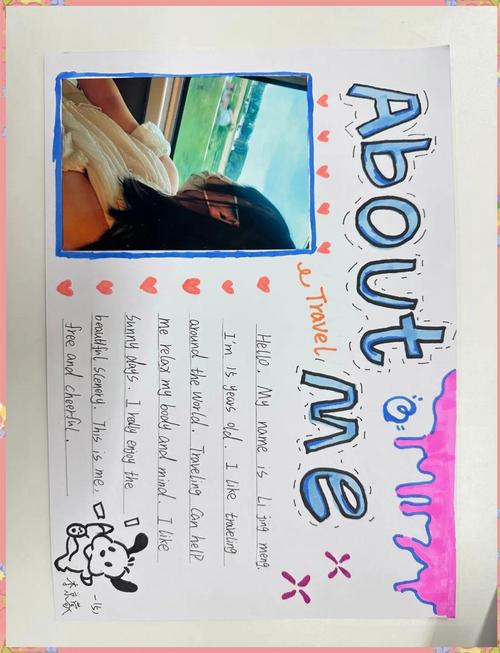 About me
Travel
Hello. My name is Li jing meng.
I'm 15 years old. I like traveling
around the world. Traveling can help
me relax my body and mind. I like
sunny days. I really enjoy the
beautiful scenery. This is me,
free and cheerful.